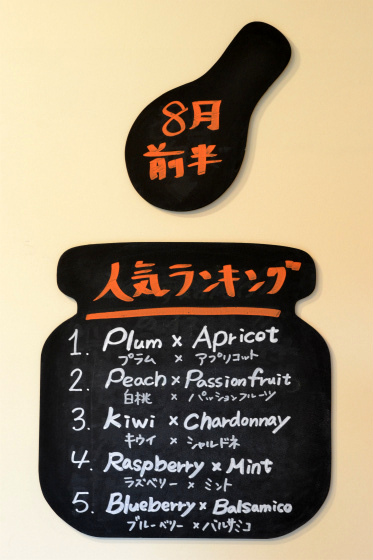 8月
前半
人気ランキング
1. Plum × Apricot
プラム × アプリコット
2. Peach × Passionfruit
白桃 × パッションフルーツ
3. Kiwi × Chardonnay
キウイ × シャルドネ
4. Raspberry × Mint
ラズベリー × ミント
5. Blueberry × Balsamico
ブルーベリー × バルサミコ